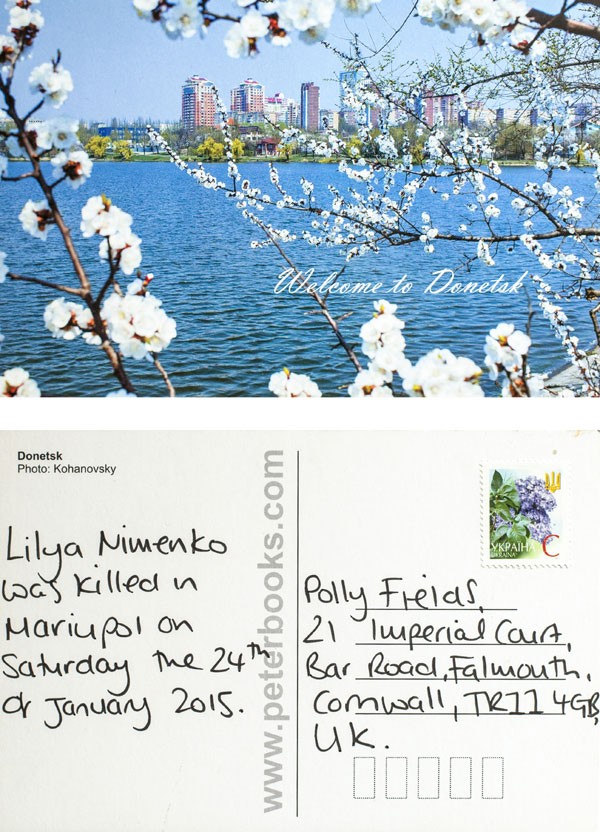 Welcome to Donetsk
Donetsk
Photo: Kohanovsky
Lilya Nimenko
was killed in
Mariupol on
Saturday the 24th
of January 2015.
www.peterbooks.com
УКРАЇНА
UKRAINE
C
Polly Fields,
21 Imperial Court,
Bar Road, Falmouth,
Cornwall, TR11 4GB,
UK.